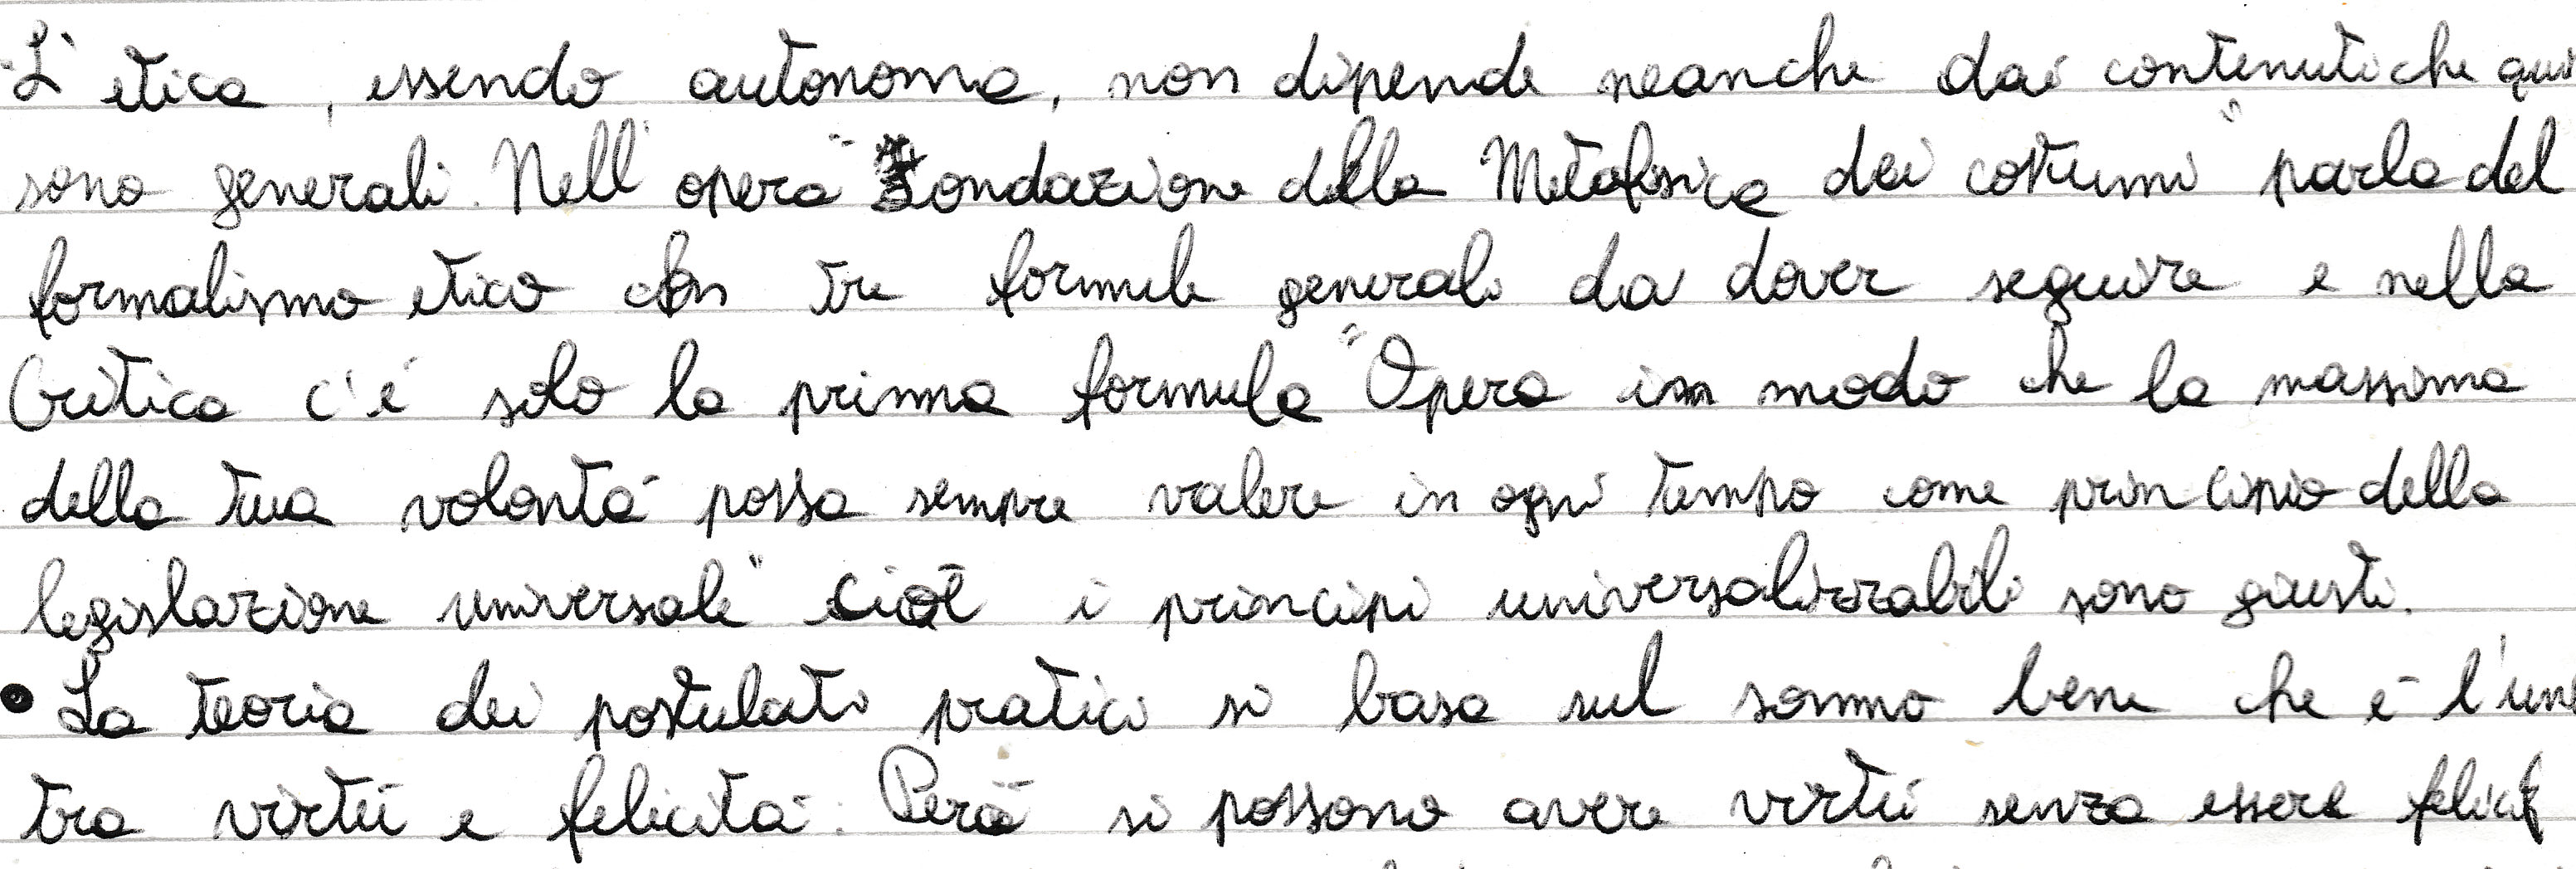 L'etica, essendo autonoma, non dipende neanche dai contenuti che
sono generali. Nell'opera "Fondazione della Metafisica dei costumi" parla del
formalismo etico con tre formule generali da dover seguire e nella
Critica c'è solo la prima formula "Opera in modo che la massima
della tua volontà possa sempre valere in ogni tempo come principio della
legislazione universale" cioè i principi universalizzabili sono giusti.
• La teoria dei postulati pratici si basa sul sommo bene che è
tra virtù e felicità. Però si possono avere virtù senza essere felici